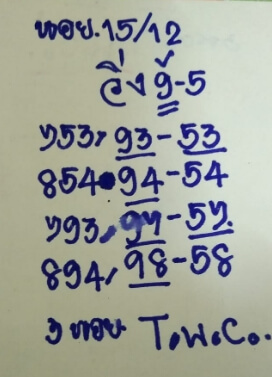 หอย.15/12
วิ่ง 9-5
753, 93-53
854 94-54
793, 97-57
894, 98-58
หอย. T.W.C..